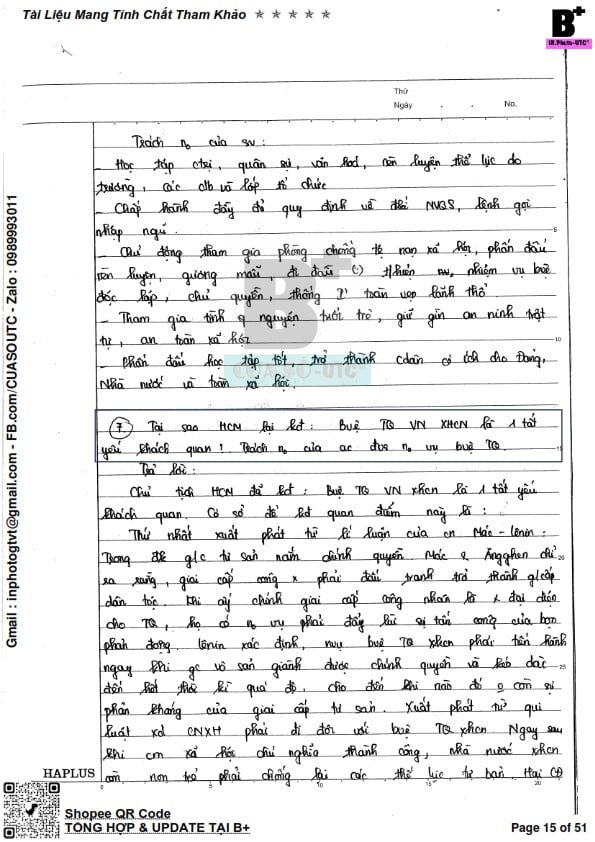 Tài Liệu Mang Tính Chất Tham Khảo ★ ★ ★ ★ ★
B+
IN.Photo-UTC*
Thứ
Ngày . . No.
Trách n0 của sv :
- Học tập ctrị, quân sự, văn hoá, rèn luyện thể lực do
trường, các clb và lớp tổ chức
- Chấp hành đầy đủ quy định về đkí NVQS, lệnh gọi
nhập ngũ.
- Chủ động tham gia phòng chống tệ nạn xã hội, phấn đấu
rèn luyện, gương mẫu đi đầu (-) thiện nv, nhiệm vụ bvệ
độc lập, chủ quyền, thống I' toàn vẹn lãnh thổ
- Tham gia tình nguyện tuổi trẻ, giữ gìn an ninh trật
tự, an toàn xã hội
- Phấn đấu học tập tốt, trở thành cdân có ích cho Đảng,
Nhà nước và toàn xã hội.
7. Tại sao HCM lại kđ : Bvệ TQ VN XHCN là 1 tất
yếu khách quan ? Trách n0 của ac đvs n0 vụ bvệ TQ.
Trả lời :
Chủ tịch HCM đã kđ : Bvệ TQ VN xhcn là 1 tất yếu
khách quan. Cơ sở để kđ quan điểm này là :
Thứ nhất xuất phát từ lí luận của cn Mác - Lênin :
Trong đk g/c tư sản nắm chính quyền Mác & Ăngghen chỉ
ra rằng, giai cấp công x phải đấu tranh trở thành g/cấp
dân tộc. Khi ấy chính giai cấp công nhân là x đại diện
cho TQ, họ có n0 vụ phải đẩy lùi sự tấn công của bọn
phản động. Lênin xác định, nvụ bvệ TQ xhcn phải tiến hành
ngay khi gc vô sản giành được chính quyền và kéo dài
đến hết thời kì quá độ, cho đến khi nào đó o còn sự
phản kháng của giai cấp tư sản. Xuất phát từ qui
luật xd CNXH phải đi đôi với bvệ TQ xhcn. Ngay sau
khi cm xã hội chủ nghĩa thành công, nhà nước xhcn
còn non trẻ phải chống lại các thế lực tư bản. Hai CĐ
5
10
15
20
25
HAPLUS
0 5 10 15 20
B+
CỬA SỔ-UTC*
Gmail : inphotogtvt@gmail.com - FB.com/CUASOUTC - Zalo : 0989993011
Shopee QR Code
TỔNG HỢP & UPDATE TẠI B+
Page 15 of 51